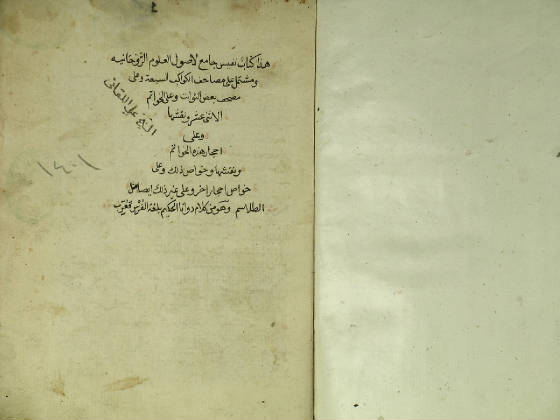 هذا كتاب نفيس جامع لاصول العلوم الروحانيه
ومشتمل على مصاحف الكواكب السبعة وعلى
مصحف بعض الثوابت وعلى الخواتم
الاثنى عشر ونقشها
وعلى
احجار هذه الخواتم
ونقشها وخواص ذلك وعلى
خواص احجار اخر وعلى غير ذلك ايضا من
الطلاسم وهو من كلام دوانا الحكيم بلغة الفرس فعرب
الشيخ علي اللقاني
١٤٠١